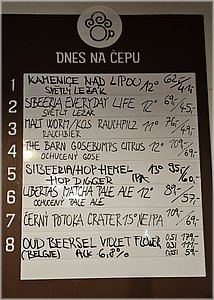 DNES NA ČEPU
1 KAMENICE NAD LIPOU 12° 62,- 41,-
SVĚTLÝ LEŽÁK
2 SIBEERIA/EVERYDAY LIFE 12° 69,- 45,-
SVĚTLÝ LEŽÁK
3 MALT WORM/KOS RAUCHPILZ 11° 76,- 49,-
RAUCHBIER
4 THE BARN GOSEBUMPS CITRUS 12° 109,- 69,-
OCHUCENÝ GOSE
5 SIBEERIA/HOP HEMEL 13° 95,-
HOP DIGGER IPA 60,-
6 LIBERTAS MATCHA PALE ALE 12° 89,-
OCHUCENÝ PALE ALE 57,-
7 ČERNÝ POTOKA CRATER 15° NEIPA 109,- 69,-
8 OUD BEERSEL VIOLET FLOWER 0,5l 179,-
(BELGIE) ALK 6,8% 0,3l 111,-